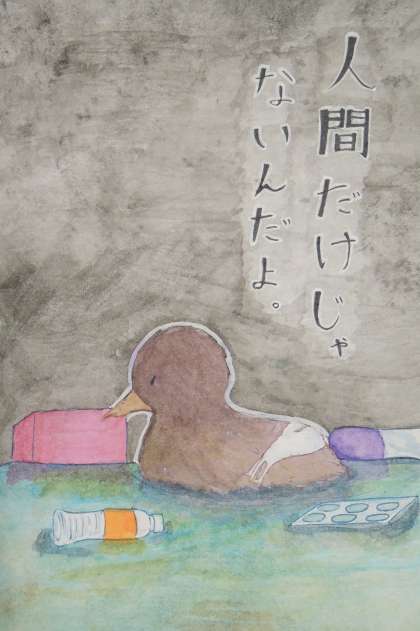 人間だけじゃ
ないんだよ。